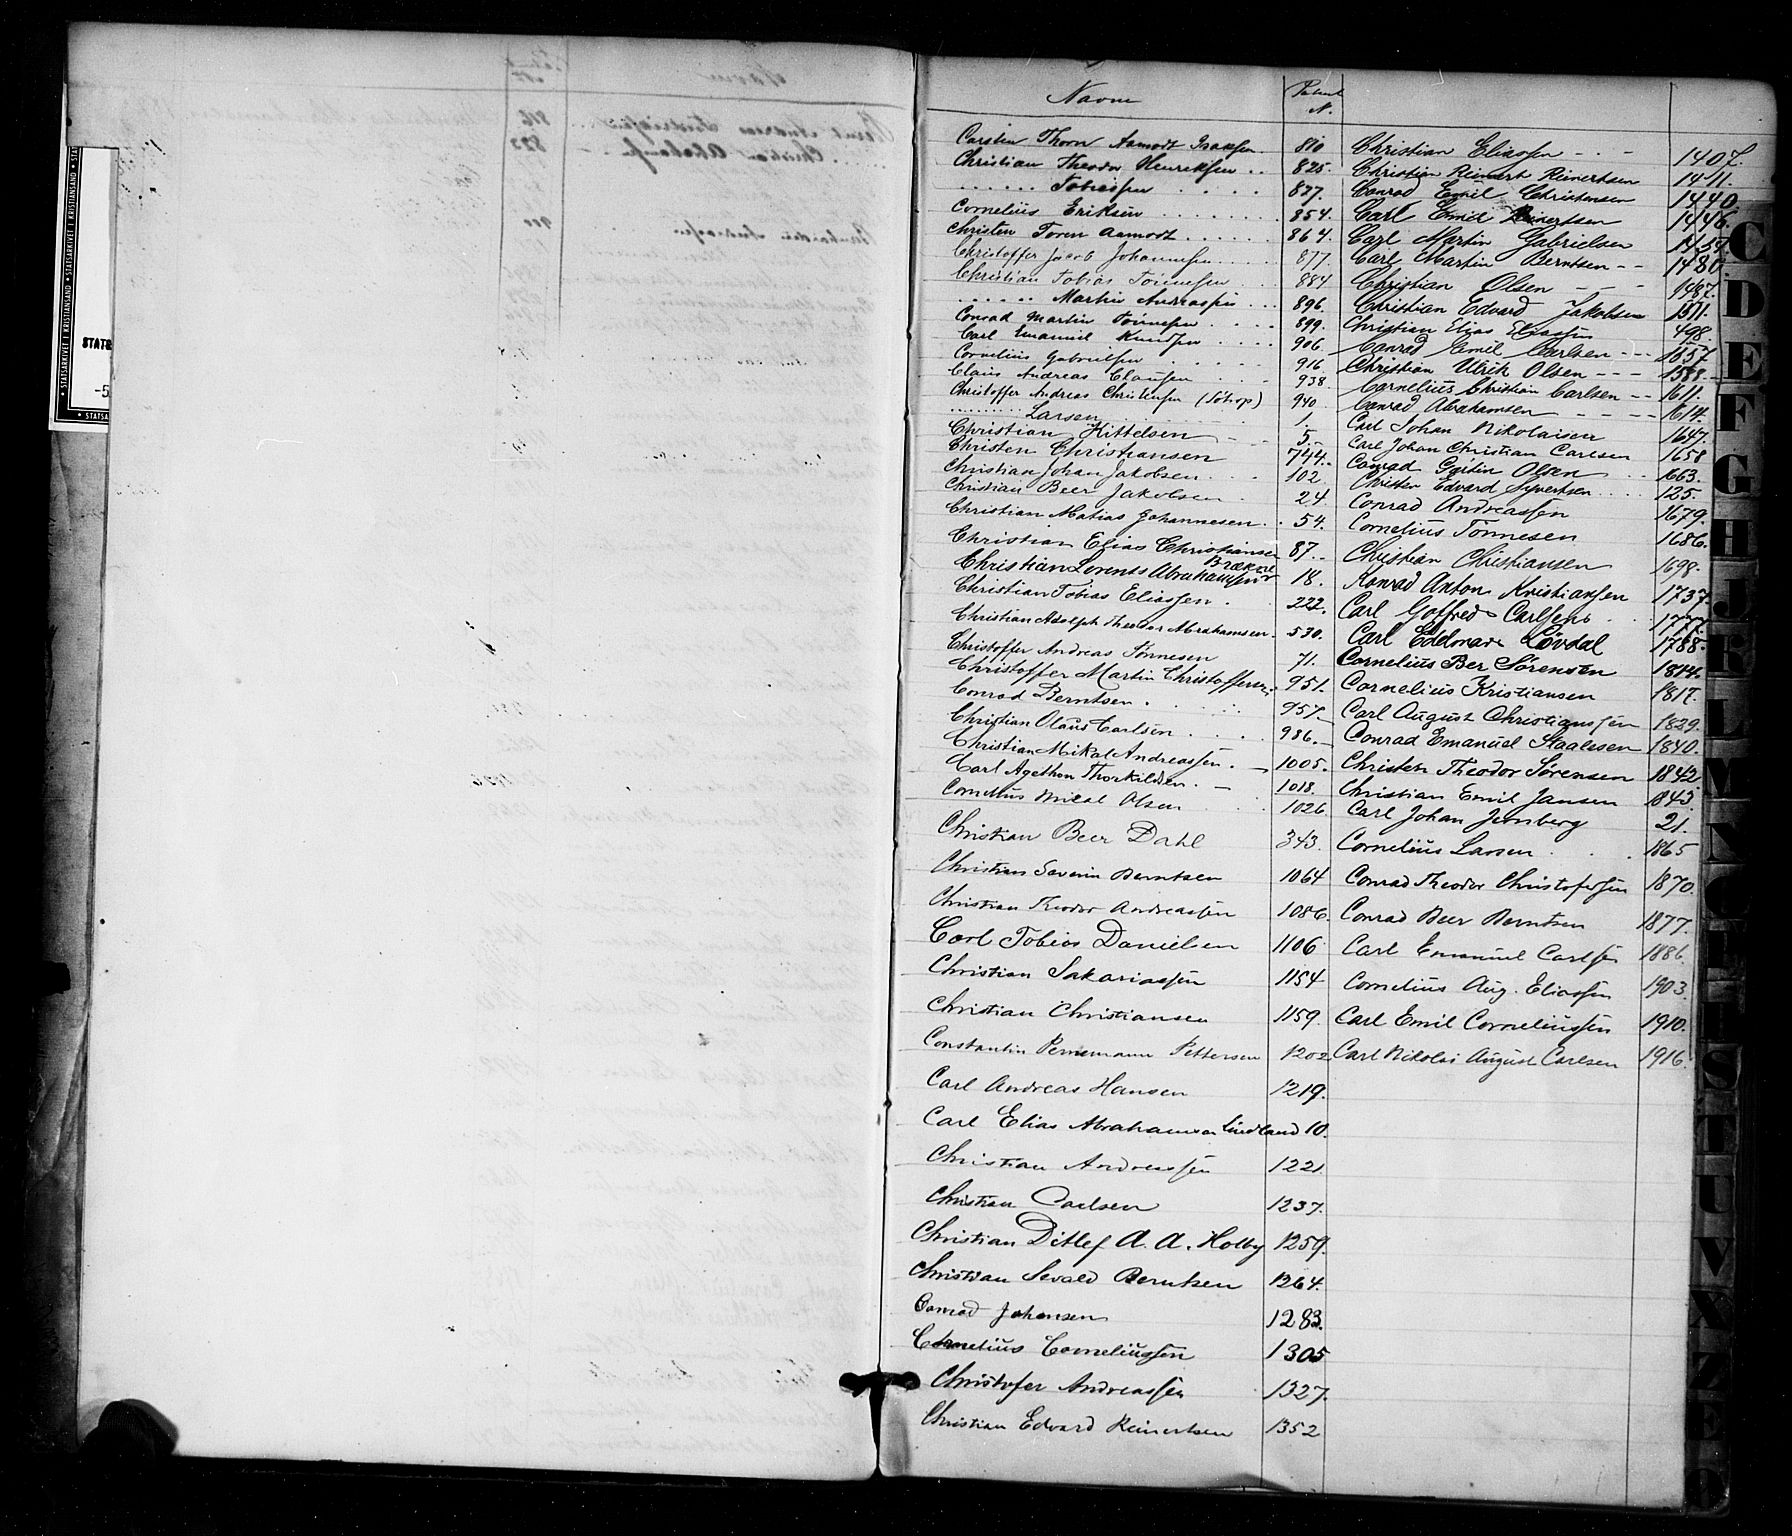 Navn
Patent N.
Carsten Thorn Aamodt Isaksen. 810
Christian Theodor Henriksen .. 825.
...... Tobiassen ..... 837.
Cornelius Eriksen ........ 854.
Christen Toren Aamodt ...... 864.
Christoffer Jacob Johannesen.... 877.
Christian Tobias Tönnesen 884
...... Martin Andreassen ... 896.
Conrad Martin Tönnesen .... 899.
Carl Emanuel Knudsen .... 906.
Cornelius Gabrielsen ..... 916
Claus Andreas Clausen ... 938.
Christoffer Andreas Christensen 940
......... Larsen 1.
Christian Kittelsen 5.
Christen Christiansen 744.
Christian Johan Jakobsen ... 102
Christian Beer Jakobsen . 24
Christian Matias Johannesen. . 54.
Christian Elias Christiansen 87.
Brække
Christian Lorents Abrahamsen 18.
Christian Tobias Eliassen . 222.
Christian Adolph Theodor Abrahamsen. 530.
Christoffer Andreas Tønnesen 71.
Christoffer Martin Christoffersen 951.
Conrad Berntsen. 957.
Christian Olaus Carlsen .... 986.
Christian Mikal Andreassen . 1005.
Carl Agethon Thorkildsen. 1018.
Cornelius Mikal Olsen 1026
Christian Beer Dahl 343.
Christian Severin Berntsen 1064
Christian Theodor Andreassen 1086.
Carl Tobias Danielsen 1106
Christian Sakariassen 1154
Christian Christiansen 1159.
Constantin Pettersen 1202
Carl Andreas Hansen 1219.
Carl Elias Abrahamsen Lindland 10.
Christian Andreassen 1221.
Christian Carlsen 1237.
Christian Ditlef A. A. Holby 1259.
Christian Sevald Berntsen 1264.
Conrad Johansen 1283.
Cornelius Corneliussen 1305
Christofer Andreassen 1327.
Christian Edvard Reinertsen 1352
Christian Eliassen - - - 1407.
Christian Reinert Reinertsen 1411.
Conrad Emil Christensen 1440.
Carl Emil Reinertsen 1446.
Carl Martin Gabrielsen 1459.
Carl Martin Berntsen - - 1480.
Christian Olsen - - - 1487.
Christian Edvard Jakobsen 1511.
Christian Elias Eliassen 498.
Conrad Emil Carlsen - - - 1557
Christian Ulrik Olsen - - - 1588.
Cornelius Christian Carlsen - - 1611.
Conrad Abrahamsen - - - - 1614.
Carl Johan Nikolaisen 1647.
Carl Johan Christian Carlsen 1658
Conrad Olsen .. 663.
Christen Edvard Syvertsen .... 125.
Conrad Andreassen 1679.
Cornelius Tönnesen 1686.
Christian Christiansen 1698.
Konrad Anton Kristiansen 1737.
Carl Gotfred Carlsen 1777.
Carl Løvdal 1788.
Cornelius Ber Sørensen 1814.
Cornelius Kristiansen 1817.
Carl August Christianssen 1829.
Conrad Emanuel Staalesen 1840.
Christen Theodor Sørensen 1842
Christian Emil Jansen 1843.
Carl Johan Jernberg 21.
Cornelius Larsen . . . 1865
Conrad Theodor Christofersen 1870.
Conrad Beer Berntsen 1877.
Carl Emanuel Carlsen 1886.
Cornelius Aug. Eliassen 1903.
Carl Emil Corneliussen 1910.
Carl Nikolai August Carlsen 1916.
C
D
E
F
G
H
J
K
L
M
N
O
P
R
S
T
U
V
X
Z
Ø
STATSARKIVET I KRISTIANSAND